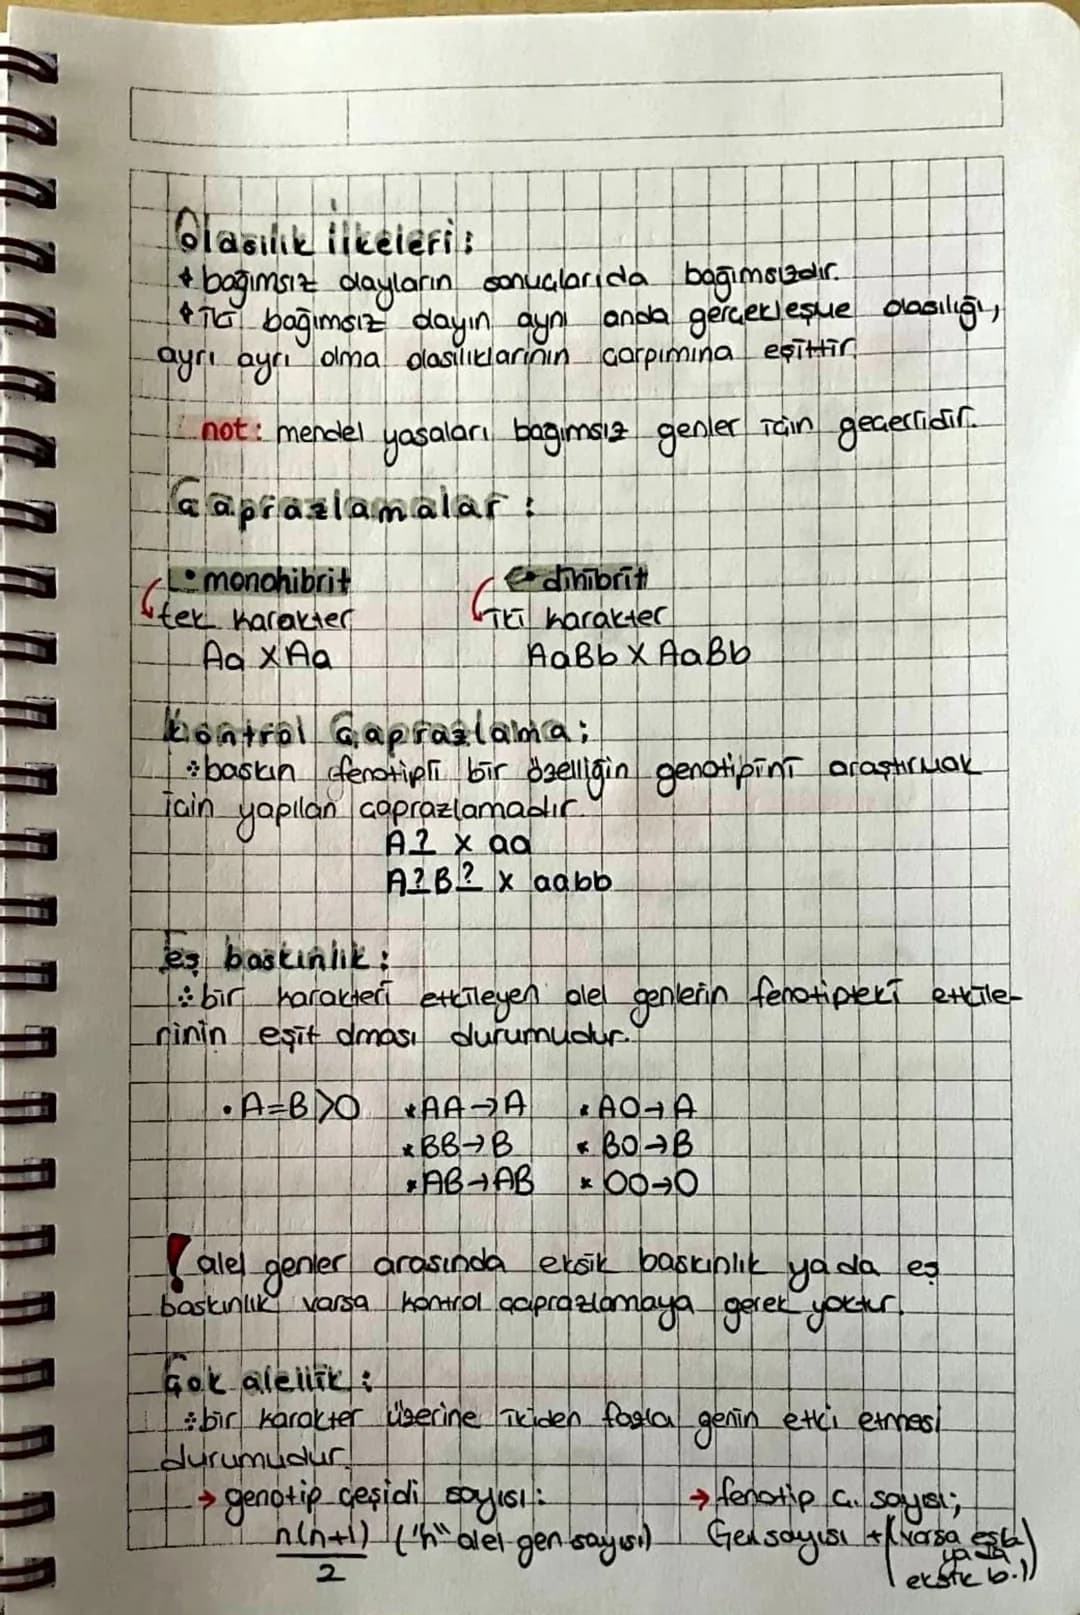 Olasılık ilkeleri:
bağımsız olayların sonuçlarıda bağımsızdır.
iki bağımsız olayın aynı anda gerçekleşme olasılığı,
ayrı ayrı olma olasılıklarının çarpımına eşittir.
not: mendel yasaları bağımsız genler için geçerlidir.
Çaprazlamalar:
• monohibrit • dihibrit
tek karakter iki karakter
Aa X Aa AaBb X AaBb
Kontrol Çaprazlama;
baskın fenotipli bir özelliğin genotipini araştırmak
için yapılan çaprazlamadır.
A? x aa
A?B? x aabb
Eş baskınlık:
bir karakteri etkileyen alel genlerin fenotipteki etkile-
rinin eşit olması durumudur.
• A=B>O * AA→A * AO→A
* BB→B * BO→B
* AB→AB * OO→O
! alel genler arasında eksik baskınlık yada eş
baskınlık varsa kontrol çaprazlamaya gerek yoktur.
Çok alellik:
bir karakter üzerine ikiden fazla genin etki etmesi
durumudur.
→ genotip çeşidi sayısı: → fenotip ç. sayısı;
n(n+1) ("n" alel gen sayısı) Gen sayısı + (varsa eş b.
2 ya da
eksik b.)